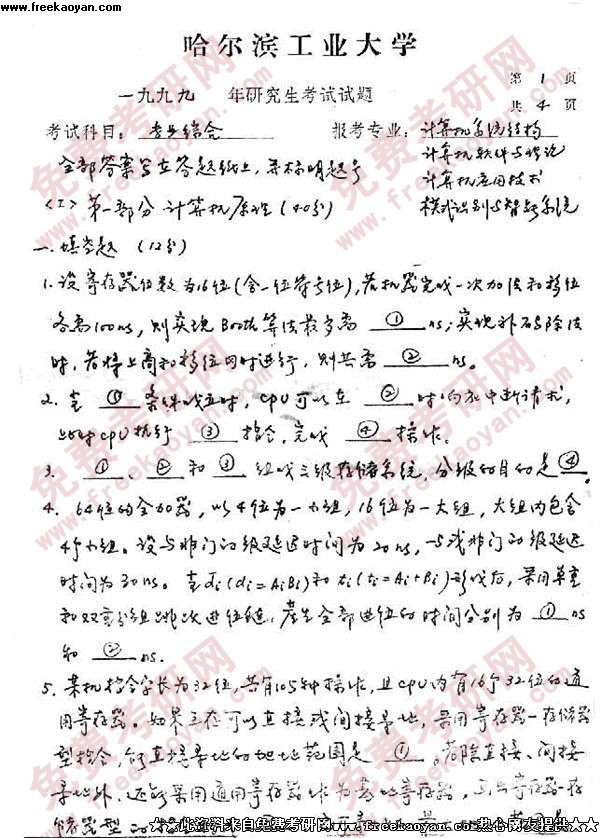 www.freekaoyan.com
哈尔滨工业大学
一九九九 年研究生考试试题
第 1 页
共 4 页
考试科目: 专业综合 报考专业: 计算机系统结构
计算机软件与理论
全部答案写在答题纸上,并标明题号 计算机应用技术
<I> 第一部分 计算机原理 (40分) 模式识别与智能系统
一.填空题 (12分)
1. 设寄存器位数为16位(含一位符号位),若机器完成一次加法和移位
各需100ns,则实现Booth算法最多需 ① ns;实现补码除法
时,若将上商和移位同时进行,则共需 ② ns。
2. 在 ① 条件成立时,CPU可以在 ② 时响应中断请求,
此时CPU执行 ③ 指令,完成 ④ 操作。
3. ① 、 ② 和 ③ 组成三级存储系统,分级的目的是 ④
4. 64位的全加器,以4位为一小组,16位为一大组,大组内包含
4个小组。设与非门的级延迟时间为20ns,与或非门的级延迟
时间为30ns。在di(di=AiBi)和ti(ti=Ai+Bi)形成后,采用单重
和双重分组跳跃进位链,产生全部进位的时间分别为 ① ns
和 ② ns.
5. 某机指令字长为32位,共有105种操作,且CPU内有16个32位的通
用寄存器。如果主存可以直接或间接寻址,采用寄存器-存储器
型指令,能直接寻址的地址范围是 ① 。若除直接、间接
寻址外,还能采用通用寄存器作为基址寄存器,
储器型的
★此资料来自免费考研网www.freekaoyan.com热心网友提供★★
免费考研网
www.freekaoyan.com